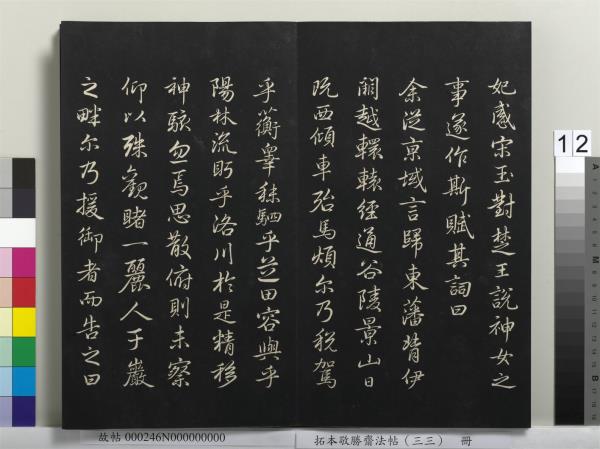 妃感宋玉對楚王說神女之
事遂作斯賦其詞曰
余從京域言歸東藩背伊
闕越轘轅徑通谷陵景山日
既西傾車殆馬煩尔乃稅駕
乎蘅皋秣駟乎芝田容與乎
陽林流眄乎洛川於是精移
神駭忽焉思散俯則未察
仰以殊觀睹一麗人于巖
之畔尔乃援御者而告之曰
12
故帖 000246N000000000
拓本敬勝齋法帖(三三) 冊